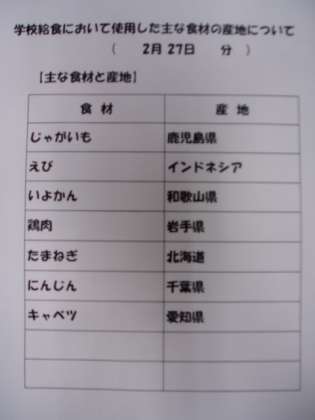 学校給食において使用した主な食材の産地について
( 2月 27日 分 )
【主な食材と産地】
食 材 産 地
じゃがいも 鹿児島県
えび インドネシア
いよかん 和歌山県
鶏肉 岩手県
たまねぎ 北海道
にんじん 千葉県
キャベツ 愛知県